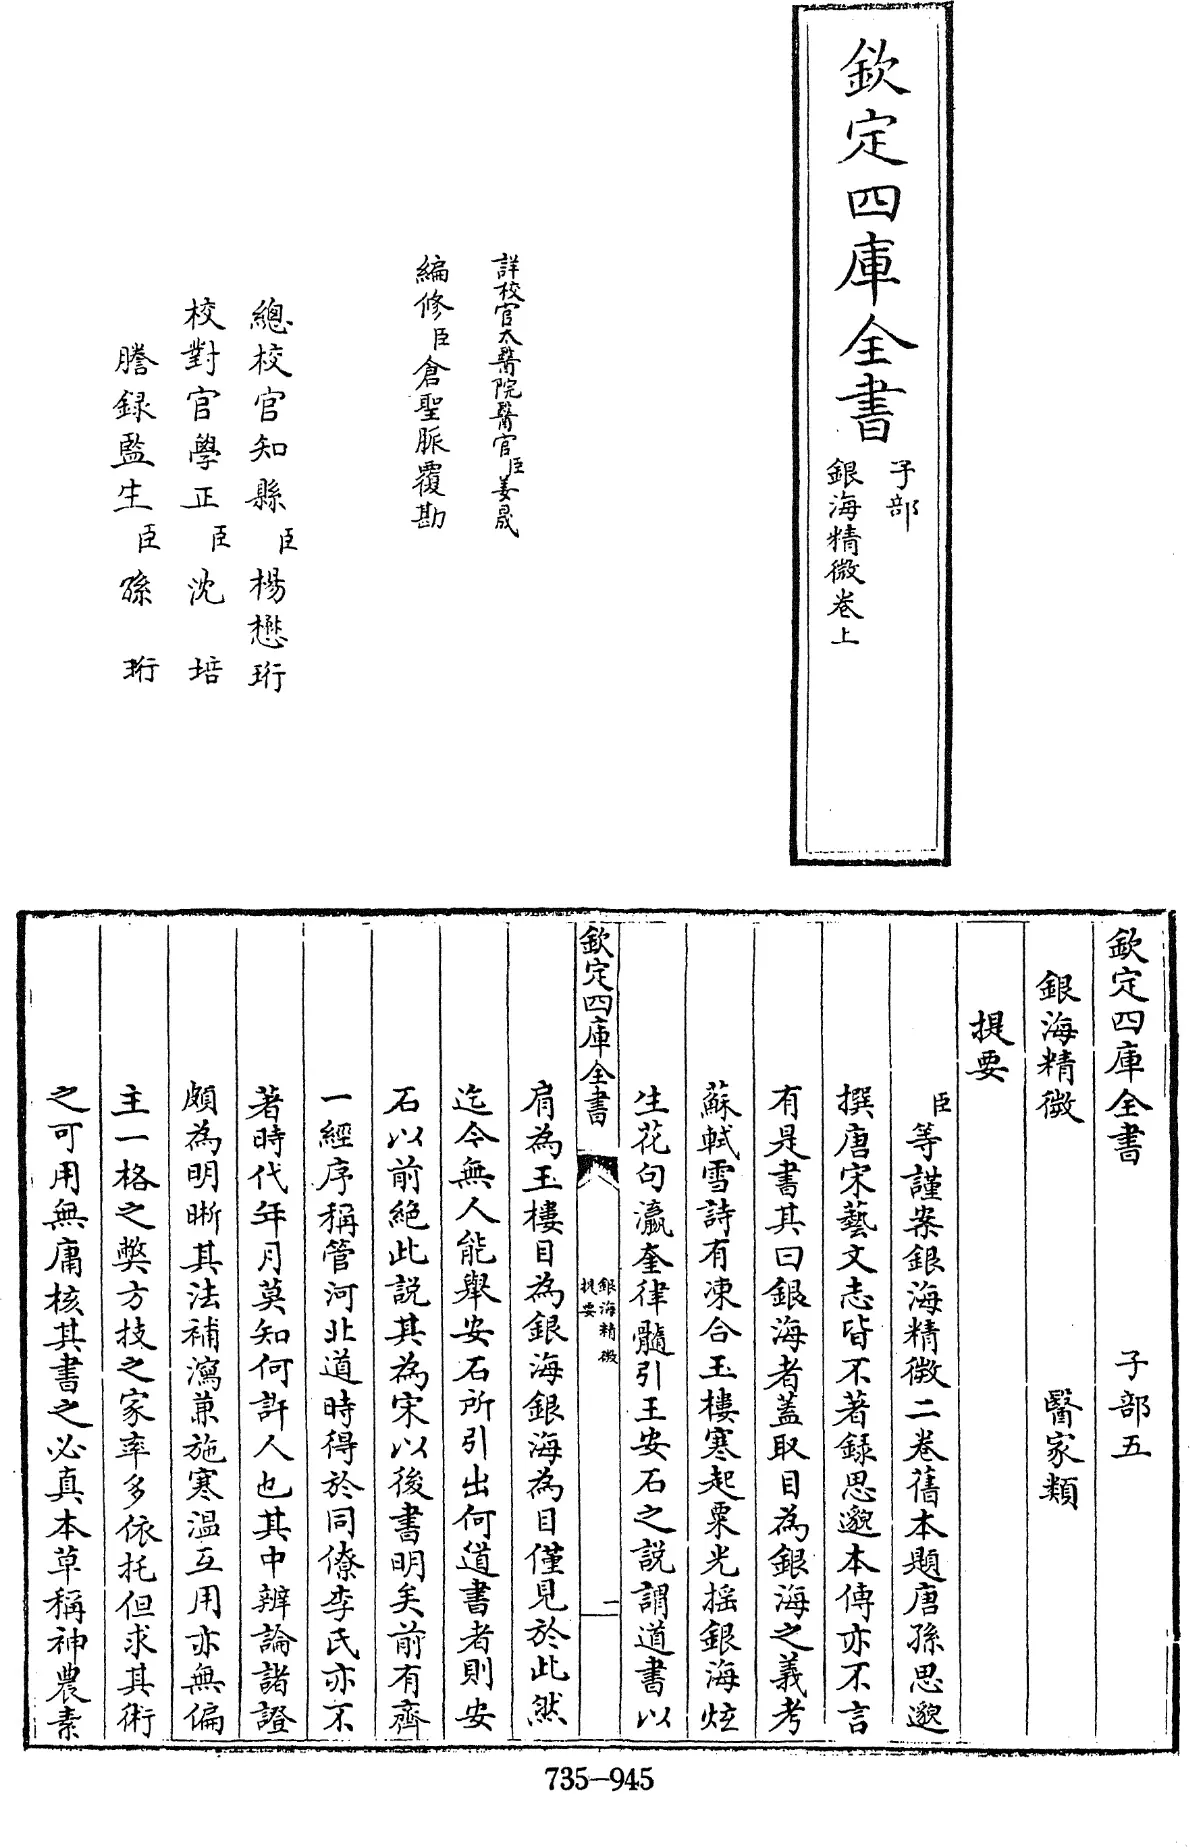 欽定四庫全書
子部
銀海精微卷上
詳校官太醫院醫官臣姜晟
編修臣倉聖脈覆勘
總校官知縣臣楊懋珩
校對官學正臣沈培
謄錄監生臣孫珩
欽定四庫全書 子部五
銀海精微 醫家類
提要
臣等謹案銀海精微二卷舊本題唐孫思邈
撰唐宋藝文志皆不著録思邈本傳亦不言
有是書其曰銀海者蓋取目為銀海之義考
蘇軾雪詩有凍合玉樓寒起粟光摇銀海炫
生花句瀛奎律髓引王安石之説謂道書以
欽定四庫全書
銀海精微
提要
二
肩為玉樓目為銀海銀海為目僅見於此然
迄今無人能舉安石所引出何道書者則安
石以前絶此説其為宋以後書明矣前有齊
一經序稱管河北道時得於同僚李氏亦不
著時代年月莫知何許人也其中辨論諸證
頗為明晰其法補瀉兼施寒温互用亦無偏
主一格之弊方技之家率多依托但求其術
之可用無庸核其書之必真本草稱神農素
735-945